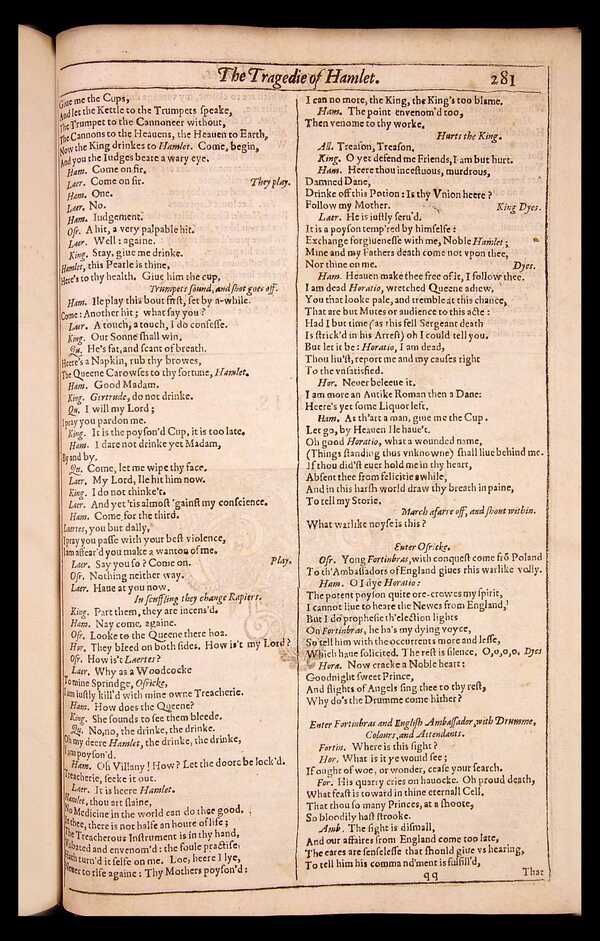 The Tragedie of Hamlet. 281
Giue me the Cups,
And let the Kettle to the Trumpets speake,
The Trumpet to the Cannoneer without,
The Cannons to the Heauens, the Heauen to Earth,
Now the King drinkes to Hamlet. Come, begin,
And you the Iudges beare a wary eye.
Ham. Come on sir.
Laer. Come on sir. They play.
Ham. One.
Laer. No.
Ham. Iudgement.
Osr. A hit, a very palpable hit.
Laer. Well: againe.
King. Stay, giue me drinke.
Hamlet, this Pearle is thine,
Here's to thy health. Giue him the cup,
Trumpets sound, and shot goes off.
Ham. Ile play this bout first, set by a-while.
Come: Another hit; what say you?
Laer. A touch, a touch, I do confesse.
King. Our Sonne shall win.
Qu. He's fat, and scant of breath.
Heere's a Napkin, rub thy browes,
The Queene Carowses to thy fortune, Hamlet.
Ham. Good Madam.
King. Gertrude, do not drinke.
Qu. I will my Lord;
I pray you pardon me.
King. It is the poyson'd Cup, it is too late.
Ham. I dare not drinke yet Madam,
By and by.
Qu. Come, let me wipe thy face.
Laer. My Lord, Ile hit him now.
King. I do not thinke't.
Laer. And yet 'tis almost 'gainst my conscience.
Ham. Come for the third.
Laertes, you but dally,
I pray you passe with your best violence,
I am affear'd you make a wanton of me.
Laer. Say you so? Come on. Play.
Osr. Nothing neither way.
Laer. Haue at you now.
In scuffling they change Rapiers.
King. Part them, they are incens'd.
Ham. Nay come, againe.
Osr. Looke to the Queene there hoa.
Hor. They bleed on both sides. How is't my Lord?
Osr. How is't Laertes?
Laer. Why as a Woodcocke
To mine Sprindge, Osricke,
I am iustly kill'd with mine owne Treacherie.
Ham. How does the Queene?
King. She sounds to see them bleede.
Qu. No, no, the drinke, the drinke.
Oh my deere Hamlet, the drinke, the drinke,
I am poyson'd.
Ham. Oh Villany! How? Let the doore be lock'd.
Treacherie, seeke it out.
Laer. It is heere Hamlet.
Hamlet, thou art slaine,
No Medicine in the world can do thee good.
In thee, there is not halfe an houre of life;
The Treacherous Instrument is in thy hand,
Vnbated and envenom'd: the foule practise
Hath turn'd it selfe on me. Loe, heere I lye,
Neuer to rise againe: Thy Mothers poyson'd:
I can no more, the King, the King's too blame.
Ham. The point envenom'd too,
Then venome to thy worke.
Hurts the King.
All. Treason, Treason.
King. O yet defend me Friends, I am but hurt.
Ham. Heere thou incestuous, murdrous,
Damned Dane,
Drinke off this Potion: Is thy Vnion heere?
Follow my Mother. King Dyes.
Laer. He is iustly seru'd.
It is a poyson temp'red by himselfe:
Exchange forgiuenesse with me, Noble Hamlet;
Mine and my Fathers death come not vpon thee,
Nor thine on me. Dyes.
Ham. Heauen make thee free of it, I follow thee.
I am dead Horatio, wretched Queene adiew,
You that looke pale, and tremble at this chance,
That are but Mutes or audience to this acte:
Had I but time (as this fell Sergeant death
Is strick'd in his Arrest) oh I could tell you.
But let it be: Horatio, I am dead,
Thou liu'st, report me and my causes right
To the vnsatisfied.
Hor. Neuer beleeue it.
I am more an Antike Roman then a Dane:
Heere's yet some Liquor left.
Ham. As th'art a man, giue me the Cup.
Let go, by Heauen Ile haue't.
Oh good Horatio, what a wounded name,
(Things standing thus vnknowne) shall liue behind me.
If thou did'st euer hold me in thy heart,
Absent thee from felicitie awhile,
And in this harsh world draw thy breath in paine,
To tell my Storie.
March afarre off, and shout within.
What warlike noyse is this?
Enter Osricke.
Osr. Yong Fortinbras, with conquest come frō Poland
To th'Ambassadors of England giues this warlike volly.
Ham. O I dye Horatio:
The potent poyson quite ore-crowes my spirit,
I cannot liue to heare the Newes from England,
But I do prophesie th'election lights
On Fortinbras, he ha's my dying voyce,
So tell him with the occurrents more and lesse,
Which haue solicited. The rest is silence. O, o, o, o. Dyes
Hora. Now cracke a Noble heart:
Goodnight sweet Prince,
And flights of Angels sing thee to thy rest,
Why do's the Drumme come hither?
Enter Fortinbras and English Ambassador, with Drumme,
Colours, and Attendants.
Fortin. Where is this sight?
Hor. What is it ye would see;
If ought of woe, or wonder, cease your search.
For. His quarry cries on hauocke. Oh proud death,
What feast is toward in thine eternall Cell.
That thou so many Princes, at a shoote,
So bloodily hast strooke.
Amb. The sight is dismall,
And our affaires from England come too late,
The eares are senselesse that should giue vs hearing,
To tell him his command'ment is fulfill'd,
qq That